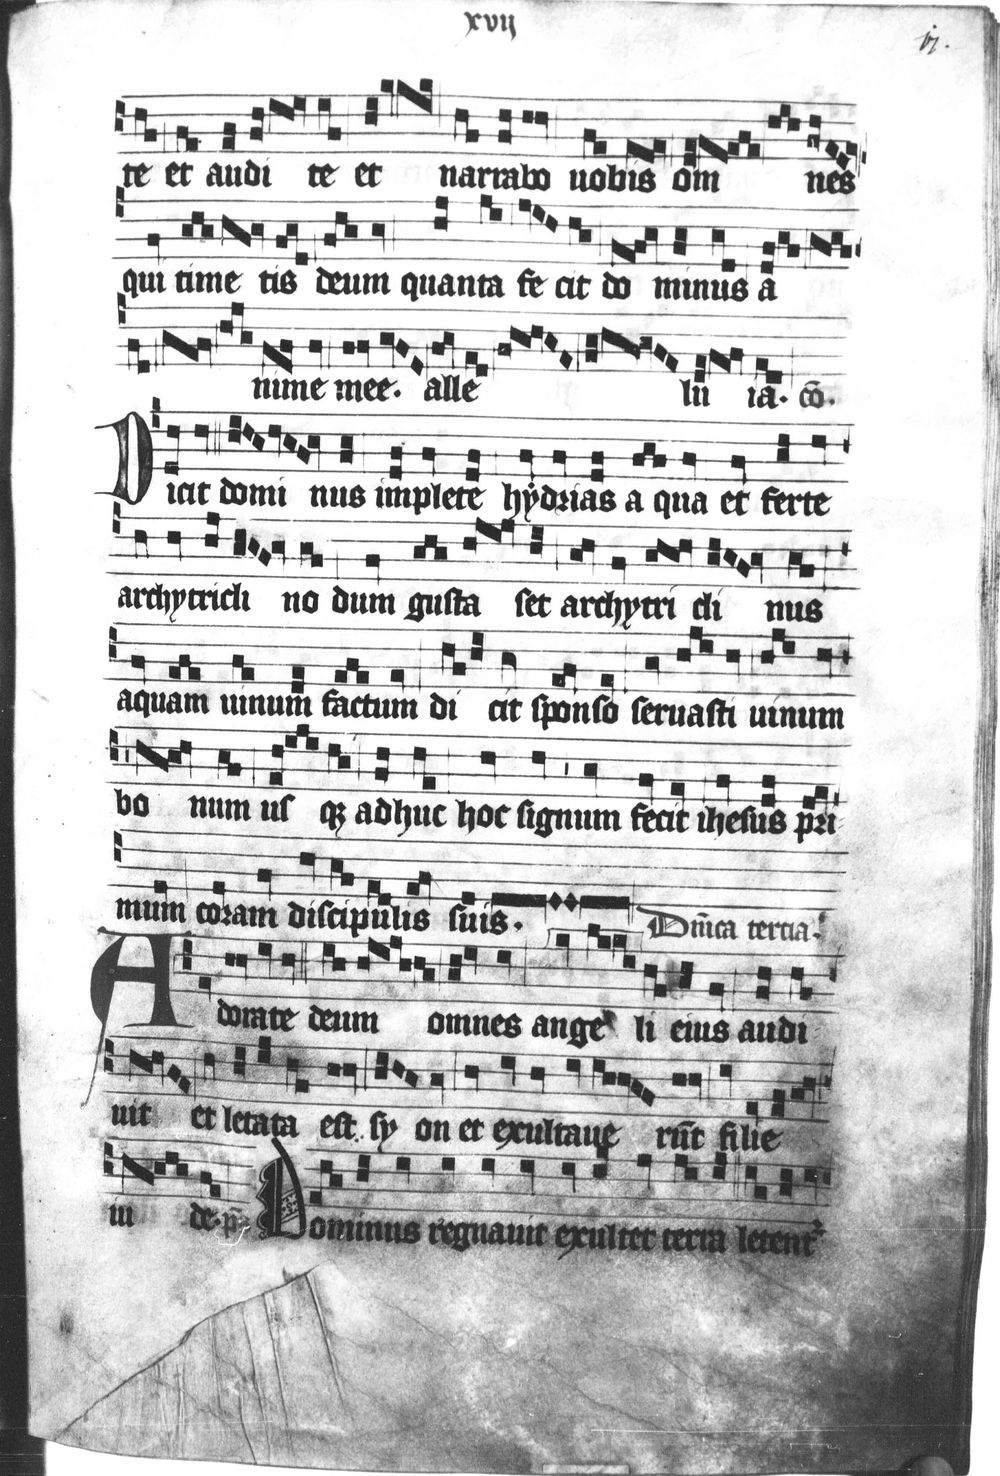 xvij
te et audi te et narrabo uobis om nes
qui time tis deum quanta fe cit do minus a
nime mee. alle lu ia. co.
Dicit domi nus implete hydrias a qua et ferte
archytricli no dum gusta set archytri cli nus
aquam uinum factum di cit sponso seruasti uinum
bo num us qz adhuc hoc signum fecit ihesus pri
mum coram discipulis suis. Dnica tercia.
Adorate deum omnes ange li eius audi
uit et letata est sy on et exultaue rut filie
iu de. ps Dominus regnauit exultet terra letent